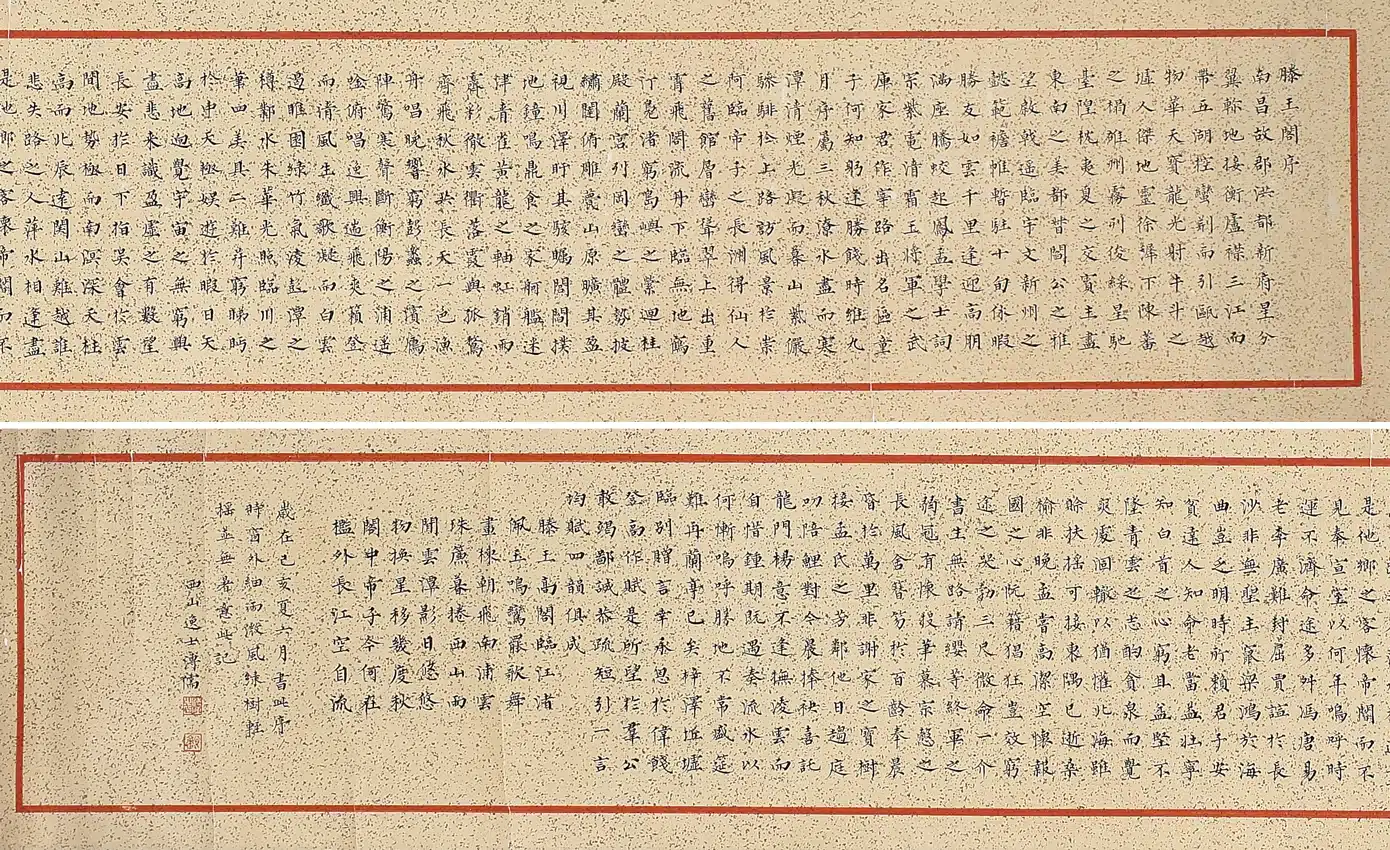 滕王閣序
南昌故郡洪都新府星分
翼軫地接衡廬襟三江而
帶五湖控蠻荆而引甌越
物華天寶龍光射牛斗之
墟人傑地靈徐孺下陳蕃
之榻雄州霧列俊綵星馳
臺隍枕夷夏之交賓主盡
東南之美都督閻公之雅
望棨戟遥臨宇文新州之
懿範襜帷暫駐十旬休暇
勝友如雲千里逢迎高朋
滿座騰蛟起鳳孟學士詞
宗紫電清霜王將軍之武
庫家君作宰路出名區童
子何知躬逢勝餞時維九
月序屬三秋潦水盡而寒
潭清煙光凝而暮山紫儼
驂騑於上路訪風景於崇
阿臨帝子之長洲得仙人
之舊館層巒聳翠上出重
霄飛閣流丹下臨無地鶴
汀鳧渚窮島嶼之縈迴桂
殿蘭宮列岡巒之體勢披
繡闥俯雕甍山原曠其盈
視川澤盱其駭矚閭閻撲
地鐘鳴鼎食之家舸艦迷
津青雀黄龍之軸虹銷雨
霽彩徹雲衢落霞與孤鶩
齊飛秋水共長天一色漁
舟唱晚響窮彭蠡之濱鴈
陣驚寒聲斷衡陽之浦遥
唫俯唱逸興遄飛爽籟發
而清風生纖歌凝而白雲
遏睢園緑竹氣凌彭澤之
樽鄴水朱華光照臨川之
筆四美具二難并窮睇眄
於中天極娛遊於暇日天
高地迥覺宇宙之無窮興
盡悲來識盈虛之有數望
長安於日下指吳會於雲
間地勢極而南溟深天柱
高而北辰遠關山難越誰
悲失路之人萍水相逢盡
是他鄉之客懷帝閽而不
是他鄉之客懷帝閽而不
見奉宣室以何年嗚呼時
運不濟命途多舛馮唐易
老李廣難封屈賈誼於長
沙非無聖主竄梁鴻於海
曲豈乏明時所賴君子安
貧達人知命老當益壯寧
知白首之心窮且益堅不
墜青雲之志酌貪泉而覺
爽處涸轍以猶懽北海雖
賒扶搖可接東隅已逝桑
榆非晚孟嘗高潔空懷報
國之心阮籍猖狂豈效窮
途之哭勃三尺微命一介
書生無路請纓等終軍之
弱冠有懷投筆慕宗慤之
長風舍簪笏於百齡奉晨
昏於萬里非謝家之寶樹
接孟氏之芳鄰他日趨庭
叨陪鯉對今晨捧袂喜託
龍門楊意不逢撫凌雲而
自惜鍾期既遇奏流水以
何慚嗚呼勝地不常盛筵
難再蘭亭已矣梓澤丘墟
臨別贈言幸承恩於偉餞
登高作賦是所望於羣公
敢竭鄙誠恭疏短引一言
均賦四韻俱成
滕王高閣臨江渚
佩玉鳴鸞罷歌舞
畫棟朝飛南浦雲
珠簾暮捲西山雨
閒雲潭影日悠悠
物換星移幾度秋
閣中帝子今何在
檻外長江空自流
歲在己亥夏六月書此序
時窗外細雨微風綠樹輕
搖並無著意此記
西山逸士溥儒